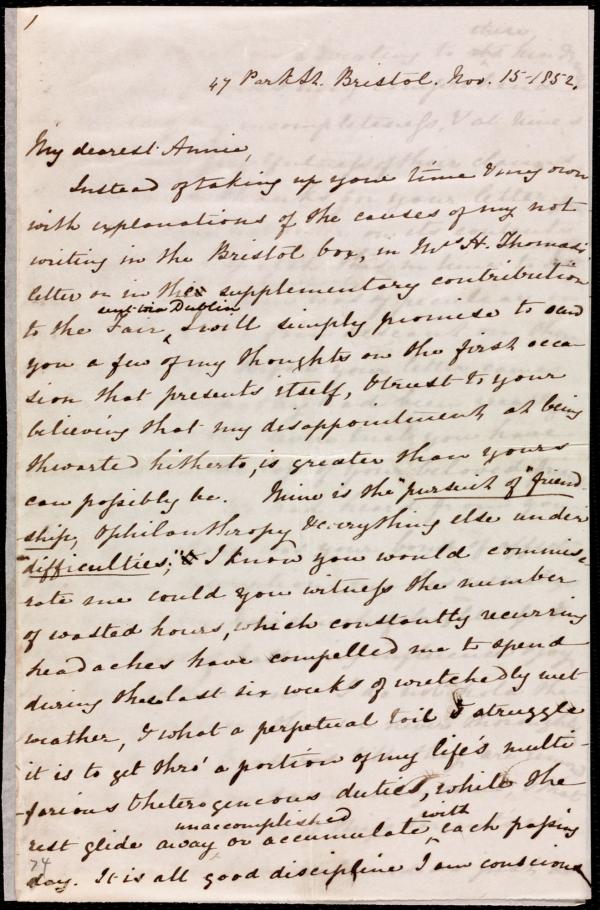 1
47 Park St. Bristol. Nov. 15-1852.
My dearest Annie,
Instead of taking up your time & my own
with explanations of the causes of my not
writing in the Bristol box, in Mrs H. Thomas's
letter or in the supplementary contribution
sent via Dublin
to the Fair, I will simply promise to send
you a few of my thoughts on the first occa-
sion that presents itself, & trust to your
believing that my disappointment at being
thwarted hitherto, is greater than yours
can possibly be. Mine is the "pursuit of" friend-
ship, & philanthropy & everything else under
difficulties;" I know you would commise-
rate me could you witness the number
of wasted hours, which constantly recurring
headaches have compelled me to spend
during the last six weeks of wretchedly wet
weather, & what a perpetual toil & struggle
it is to get thro' a portion of my life's multi-
farious & heterogeneous duties, while the
unaccomplished with
rest glide away or accumulate each passing
74
day. It is all good discipline I am conscious